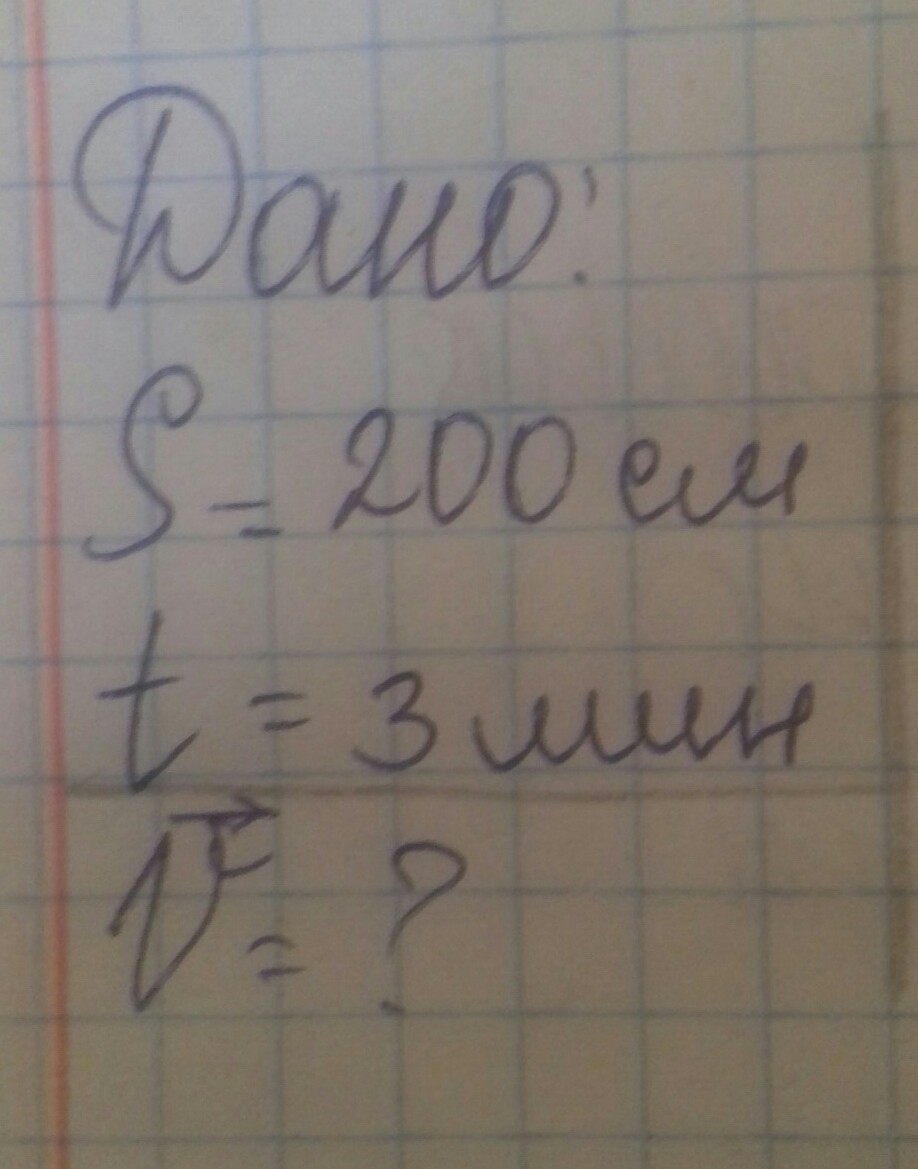 Дано:
S = 200 см
t = 3 мин
V⃗ = ?